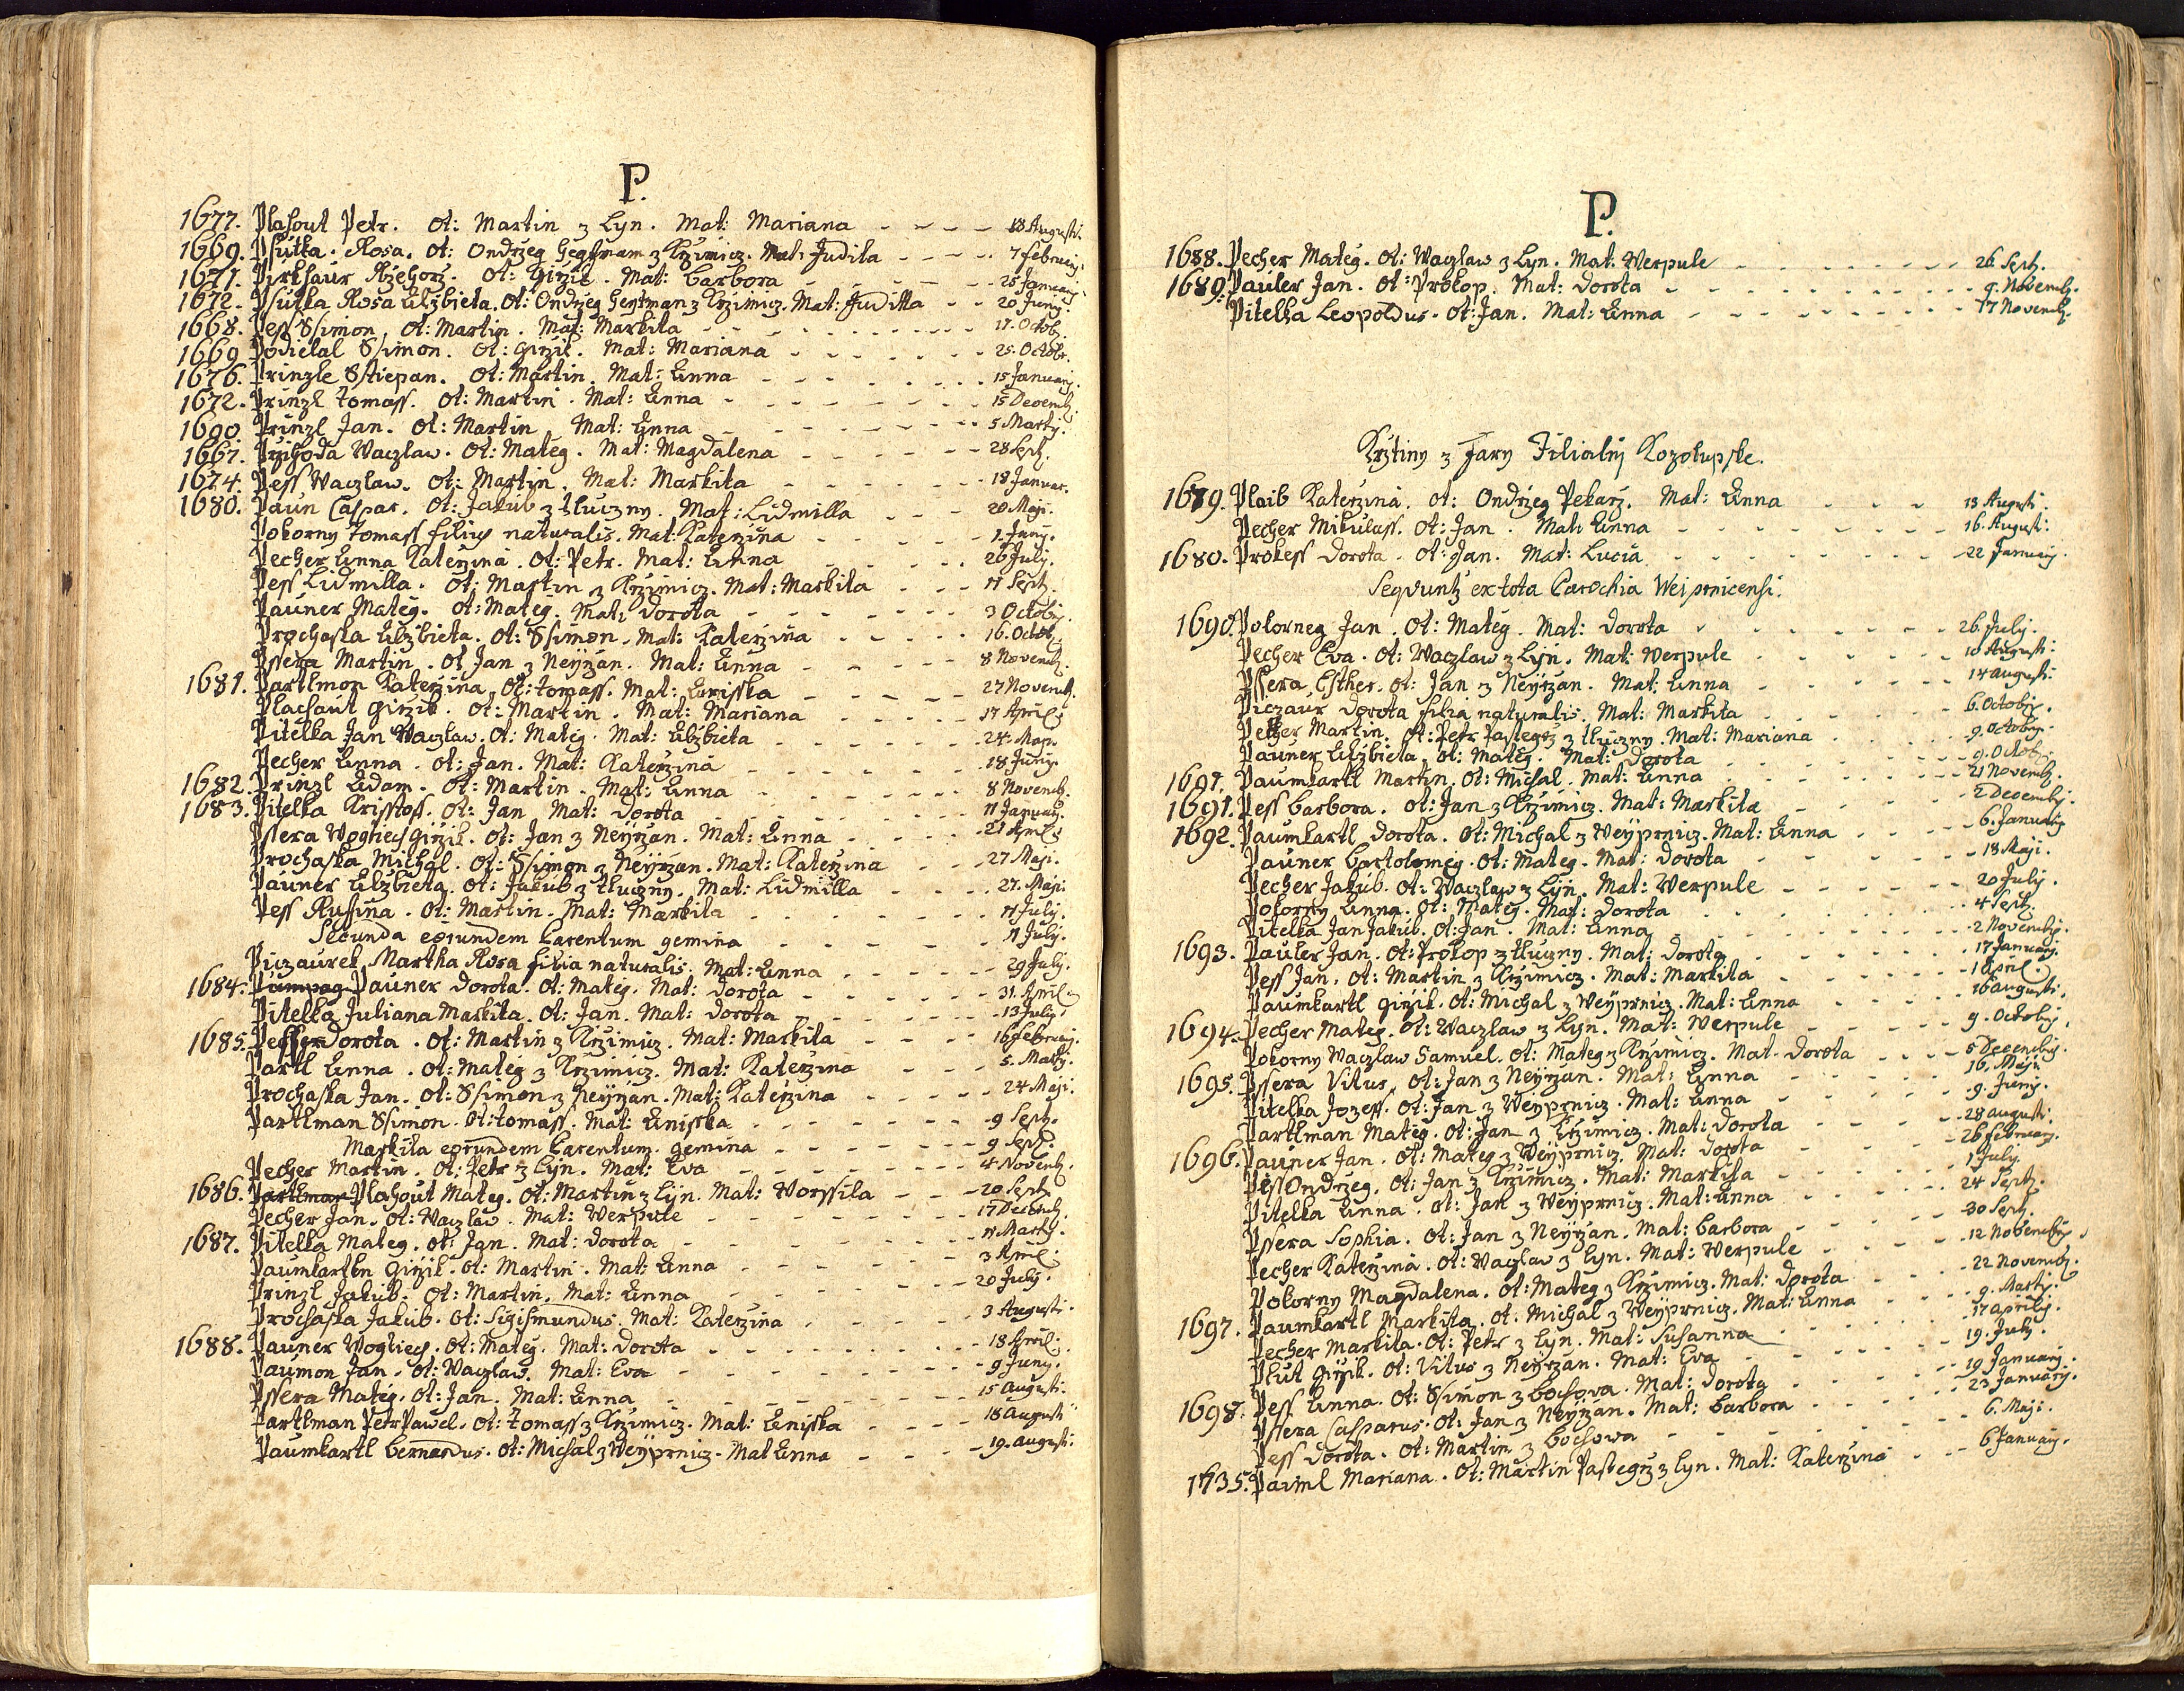 P.
1677. Plahout Petr. Ot: Martin z Lyn. Mat: Mariana - - - - 18 Augusti.
1669. Psutka. Rosa. Ot: Ondrzeg Gegtman z Krzimicz. Mat: Judita - - - - 7 February.
1671. Pirkhaur Rzehorz. Ot: Girzik. Mat: Barbora - - - - 25 January.
1672. Psutka Rosa Elzbieta. Ot: Ondrzeg Gegtman z Krzimicz. Mat: Juditta - - 20 Juny.
1668. Pess Ssimon. Ot: Martin. Mat: Markita - - - - 17. Octob.
1669. Podielal Ssimon. Ot: Girzik. Mat: Mariana - - - - 25. Octobr.
1676. Prinzle Sstiepan. Ot: Martin. Mat: Anna - - - - 15 January.
1672. Prinzl Tomass. Ot: Martin. Mat: Anna - - - - 15 Decemb.
1690. Prinzl Jan. Ot: Martin. Mat: Anna - - - - 5 Marty.
1667. Przihoda Waczlaw. Ot: Mateg. Mat: Magdalena - - - - 28 Sept.
1674. Pess Waczlaw. Ot: Martin. Mat: Markita - - - - 18 Januar.
1680. Paun Caspar. Ot: Jakub z Tluczny. Mat: Lidmilla - - - 20 Maji.
Pokorny Tomass filius naturalis. Mat: Katerzina - - - - 1. Juny.
Pecher Anna Katerzina. Ot: Petr. Mat: Anna - - - - 26 July.
Pess Lidmilla. Ot: Martin z Krzimicz. Mat: Markita - - - 17 Sept.
Pauner Mateg. Ot: Mateg. Mat: Dorota - - - - 3 Octobr.
Prochaska Elzbieta. Ot: Ssimon. Mat: Katerzina - - - - 16. Octob.
Pssera Martin. Ot Jan z Neyrzan. Mat: Anna - - - - 8 Novemb.
1681. Partlmon Katerzina. Ot: Tomass. Mat: Anisska - - - - 27 Novemb.
Plachaut Girzik. Ot: Martin. Mat: Mariana - - - - 17 April:
Pitelka Jan Waczlaw. Ot: Mateg. Mat: Elzbieta - - - - 24. Maji.
Pecher Anna. Ot: Jan. Mat: Katerzina - - - - 18 Juny.
1682. Prinzl Adam. Ot: Martin. Mat: Anna - - - - 8 Novemb.
1683. Pitelka Krisstoff. Ot: Jan Mat: Dorota - - - - 11 January.
Pssera Wogtiech Girzik. Ot: Jan z Neyrzan. Mat: Anna - - - - 21 April:
Prochaska Michal. Ot: Ssimon z Neyrzan. Mat: Katerzina - - 27 Maji.
Pauner Elzbieta. Ot: Jakub z Tluczny. Mat: Lidmilla - - - - 27. Maji.
Pess Rusina. Ot: Martin. Mat: Markita - - - - 17 July.
Secunda eorundem Parentum gemina - - - - 17 July.
Piczaurek Martha Rosa filia naturalis. Mat: Anna - - - - 29 July.
1684. Pauner Dorota. Ot: Mateg. Mat: Dorota - - - - 31. April.
Pitelka Juliana Markita. Ot: Jan. Mat: Dorota - - - - 13 July.
1685. Dorota. Ot: Martin z Krzimicz. Mat: Markita - - - - 16 February.
Partl Anna. Ot: Mateg z Krzimicz. Mat: Katerzina - - - 5. Marty.
Prochaska Jan. Ot: Ssimon z Neyrzan. Mat: Katerzina - - - - 24 Maji.
Partlman Ssimon. Ot: Tomass. Mat: Anisska - - - - 9 Sept.
Markita eorundem Parentum. gemina - - - - 9 Sept.
Pecher Martin. Ot: Petr z Lyn. Mat: Eva - - - - 4 Novemb.
1686. Partlman Plahout Mateg. Ot: Martin z Lyn. Mat: Worssila - - - 20 Sept.
Pecher Jan. Ot: Waczlaw. Mat: Werpule - - - - 17 Decemb.
1687. Pitelka Mateg. Ot: Jan. Mat: Dorota - - - - 11 Marty.
Paumkartln Girzik. Ot: Martin. Mat: Anna - - - - 3 April:
Prinzl Jakub. Ot: Martin. Mat: Anna - - - - 20 July.
Prochaska Jakub. Ot: Sigismundus. Mat: Katerzina - - - - 3 Augusti.
1688. Pauner Wogtiech. Ot: Mateg. Mat: Dorota - - - - 18 April:
Paumon Jan. Ot: Waczlaw. Mat: Eva - - - - 9 Juny.
Pssera Mateg. Ot: Jan. Mat: Anna - - - - 15 Augusti.
Partlman Petr Pawel. Ot: Tomass z Krzimicz. Mat: Anisska - - - - 18 Augusti
Paumkartl Bernardus. Ot: Michal z Weyprnicz. Mat Anna - - - 19. Augusti.
P.
1688. Pecher Mateg. Ot: Waczlaw z Lyn. Mat. Werpule - - - - 26 Sept.
1689. Pauler Jan. Ot: Prokop. Mat: Dorota - - - - 9. Novemb.
Pitelka Leopoldus. Ot: Jan. Mat: Anna - - - - 17 Novemb.
Krztiny z Fary Filialnj Kozolupske.
1679. Plaib Katerzina. Ot: Ondrzeg Pekarz. Mat: Anna - - - - 13 Augusti.
Pecher Mikulass. Ot: Jan. Mat: Anna - - - - 16. Augusti.
1680. Prokess Dorota. Ot: Jan. Mat: Lucia - - - - 22 January.
Sequuntur ex tota Parochia Weiprnicensi.
1690. Pokorneg Jan. Ot: Mateg. Mat: Dorota - - - - 26. July.
Pecher Eva. Ot: Waczlaw z Lyn. Mat: Werpule - - - - 10 Augusti.
Pssera Esther. Ot: Jan z Neyrzan. Mat: Anna - - - - 14 Augusti.
Piczaur Dorota filia naturalis. Mat: Markita - - - - 6. Octobr.
Pecher Martin. Ot: Petr Pastegrz z Tluczny. Mat: Mariana - - - - 9. Octobr.
Pauner Elzbieta. Ot: Mateg. Mat: Dorota - - - - 9. Octob.
1691. Paumkartl Martin. Ot: Michal. Mat: Anna - - - - 21 Novemb.
1691. Pess Barbora. Ot: Jan z Krzimicz. Mat: Markita - - - - 2 Decemb.
1692. Paumkartl Dorota. Ot: Michal z Weyprnicz. Mat: Anna - - - - 6. January.
Pauner Bartolomeg. Ot: Mateg. Mat: Dorota - - - - 18 Maji.
Pecher Jakub. Ot: Waczlaw z Lyn. Mat: Werpule - - - - 20 July.
Pokorny Anna. Ot: Mateg. Mat: Dorota - - - - 4 Sept.
Pitelka Jan Jakub. Ot: Jan. Mat: Anna - - - - 2 Novemb.
1693. Pauler Jan. Ot: Prokop z Tluczny. Mat: Dorota - - - - 17 January.
Pess Jan. Ot: Martin z Krzimicz. Mat: Markita - - - - 1 April.
Paumkartl Girzik. Ot: Michal z Weyprnicz. Mat: Anna - - - - 16 Augusti.
1694. Pecher Mateg. Ot: Waczlaw z Lyn. Mat: Werpule - - - - 9. Octobr.
Pokorny Waczlaw Samuel. Ot: Mateg z Krzimicz. Mat. Dorota - - - - 5 Decemb.
1695. Pssera Vitus. Ot: Jan z Neyrzan. Mat: Anna - - - - 16. Maji
Pitelka Jozeff. Ot: Jan z Weyprnicz. Mat: Anna - - - - 9. Juny.
Partlman Mateg. Ot: Jan z Krzimicz. Mat: Dorota - - - - 28 Augusti.
1696. Pauner Jan. Ot: Mateg z Weyprnicz. Mat: Dorota - - - - 26 February.
Pess Ondrzeg. Ot: Jan z Krzimicz. Mat: Markita - - - - 1 July.
Pitelka Anna. Ot: Jan z Weyprnicz. Mat: Anna - - - - 24 Sept.
Pssera Sophia. Ot: Jan z Neyrzan. Mat: Barbora - - - - 30 Sept.
Pecher Katerzina. Ot: Waczlaw z Lyn. Mat: Werpule - - - - 12 Novembr.
Pokorny Magdalena. Ot: Mateg z Krzimicz. Mat: Dorota - - - - 22 Novemb.
1697. Paumkartl Markita. Ot: Michal z Weyprnicz. Mat: Anna - - - - 9. Marty.
Pecher Markita. Ot: Petr z Lyn. Mat: Susanna - - - - 17 Aprily.
Plut Girzik. Ot: Vitus z Neyrzan. Mat: Eva - - - - 19. July.
1698. Pess Anna. Ot: Ssimon z Bochowa. Mat: Dorota - - - - 19 January.
Pssera Casparus. Ot: Jan z Neyrzan. Mat: Barbora - - - - 23 January.
Pess Dorota. Ot: Martin z Bochowa - - - - 6. Maji.
1735. Paiml Mariana. Ot: Martin Pastegrz z Lyn. Mat: Katerzina - - - - 6 January.